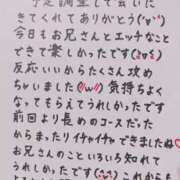 予定調整して会いに
きてくれてありがとう(˘▽˘)
今日もお兄さんとエッチなこと
できて楽しかったです(≧▽≦)
反応いいからたくさん攻め
ちゃいました(⁄⁄ω⁄⁄) 気持ちよく
なってもらえてうれしかったです
前回より長めのコースだった
からまったりイチャイチャできましたね♡
お兄さんのこといろいろ知れて
うれしかったです(^^)これから